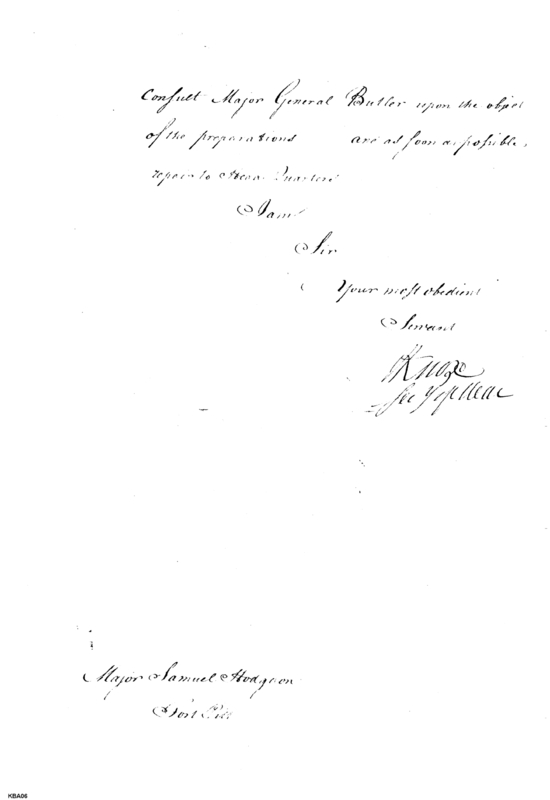 Consult Major General Butler upon the object
of the preparations are as soon as possible,
repair to Head Quarters
I am
Sir
Your most obedient
Servant
HKnox
Secy of War
Major Samuel Hodgdon
Fort Pitt
KBA06